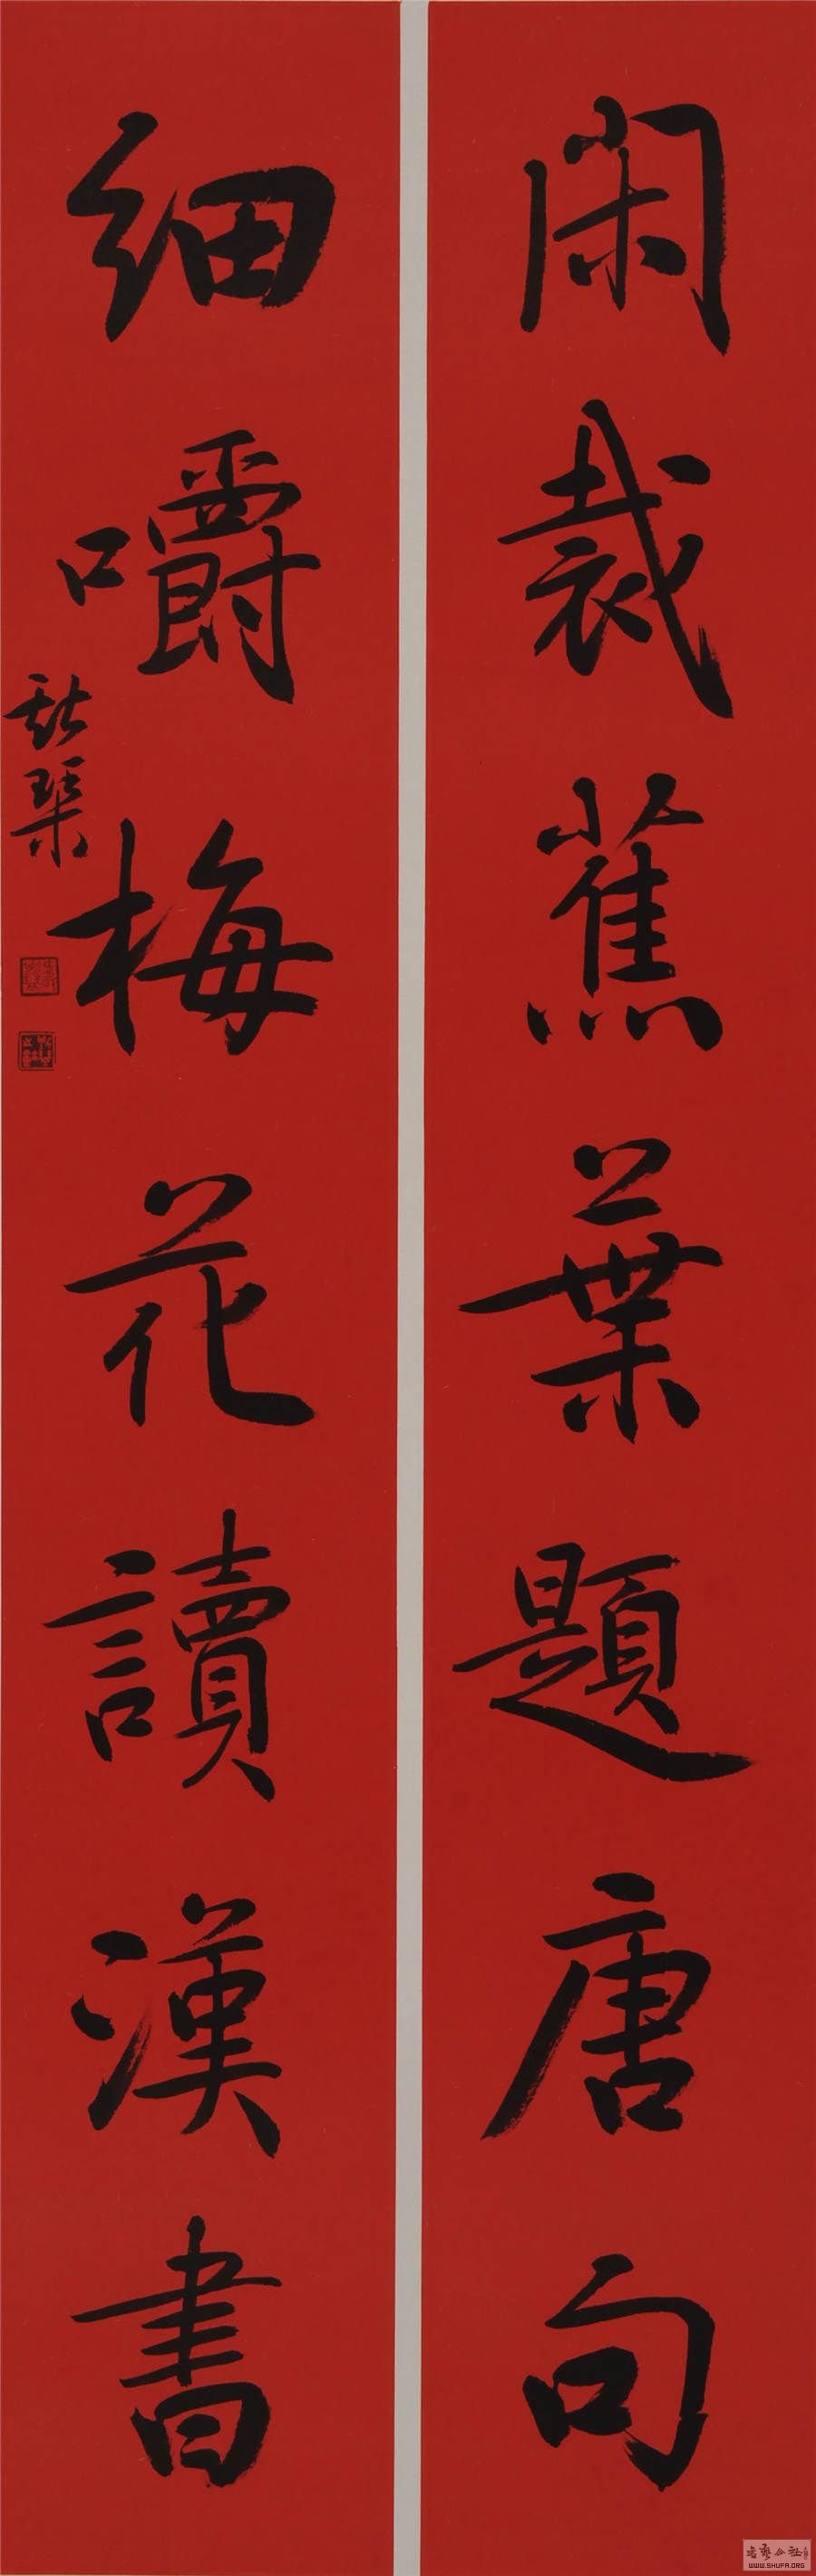 閑裁蕉葉題唐句
細嚼梅花讀漢書
WWW.SHUFA.ORG